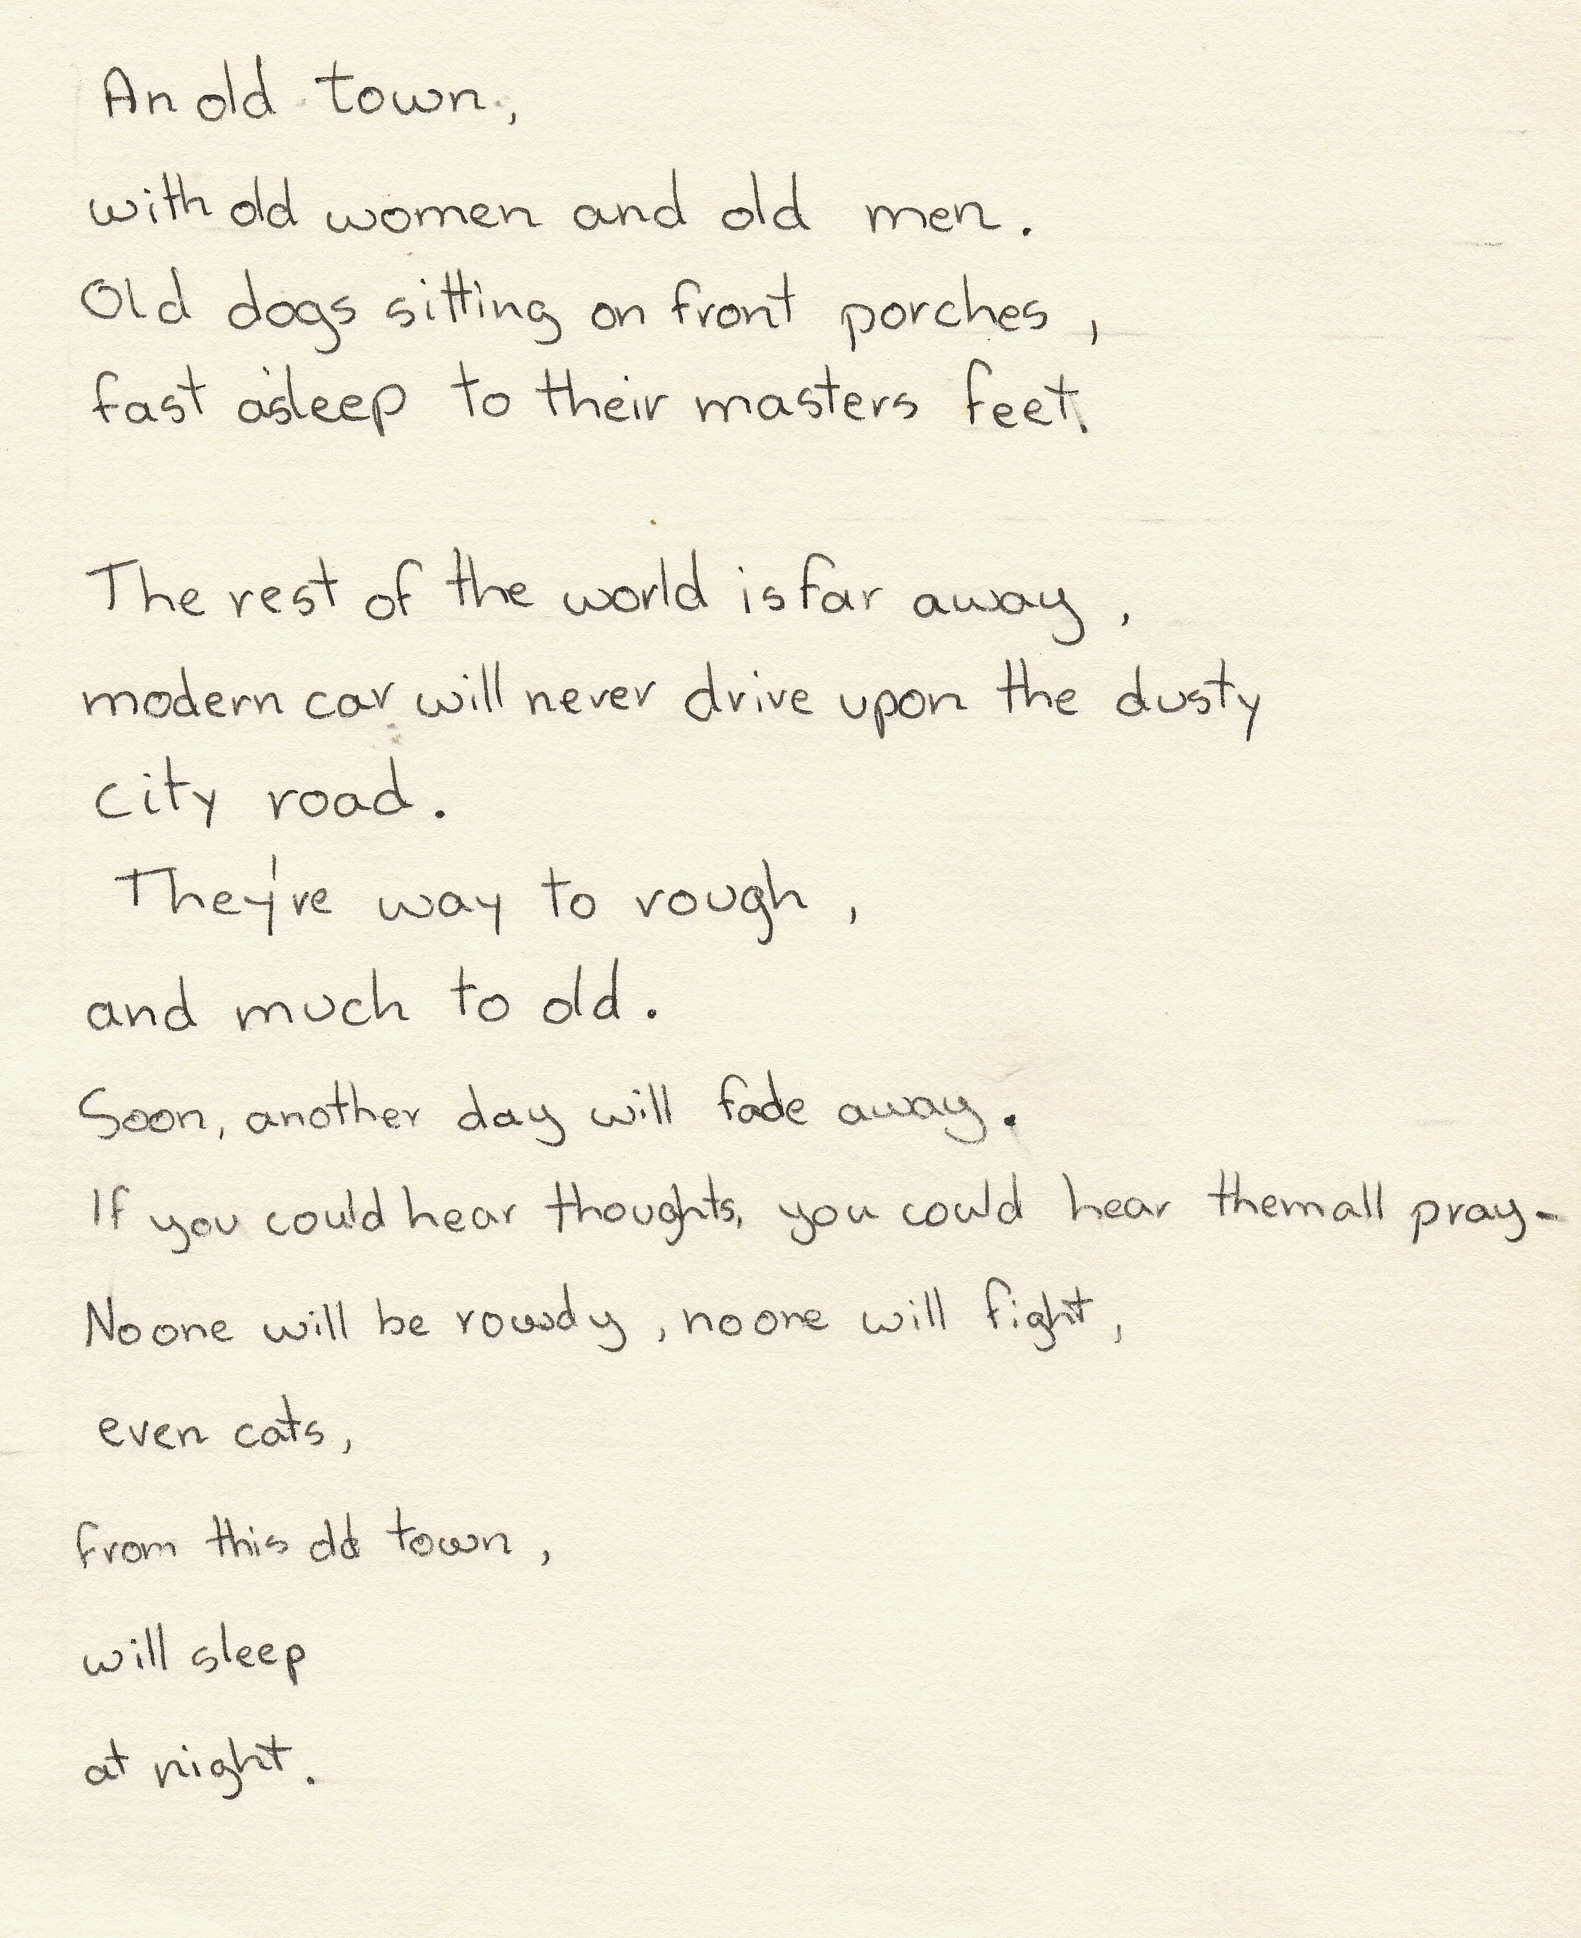 An old town,
with old women and old men.
Old dogs sitting on front porches,
fast asleep to their masters feet.
The rest of the world is far away,
modern car will never drive upon the dusty
city road.
They're way to rough,
and much to old.
Soon, another day will fade away.
If you could hear thoughts, you could hear them all pray-
No one will be rowdy, no one will fight,
even cats,
from this old town,
will sleep
at night.